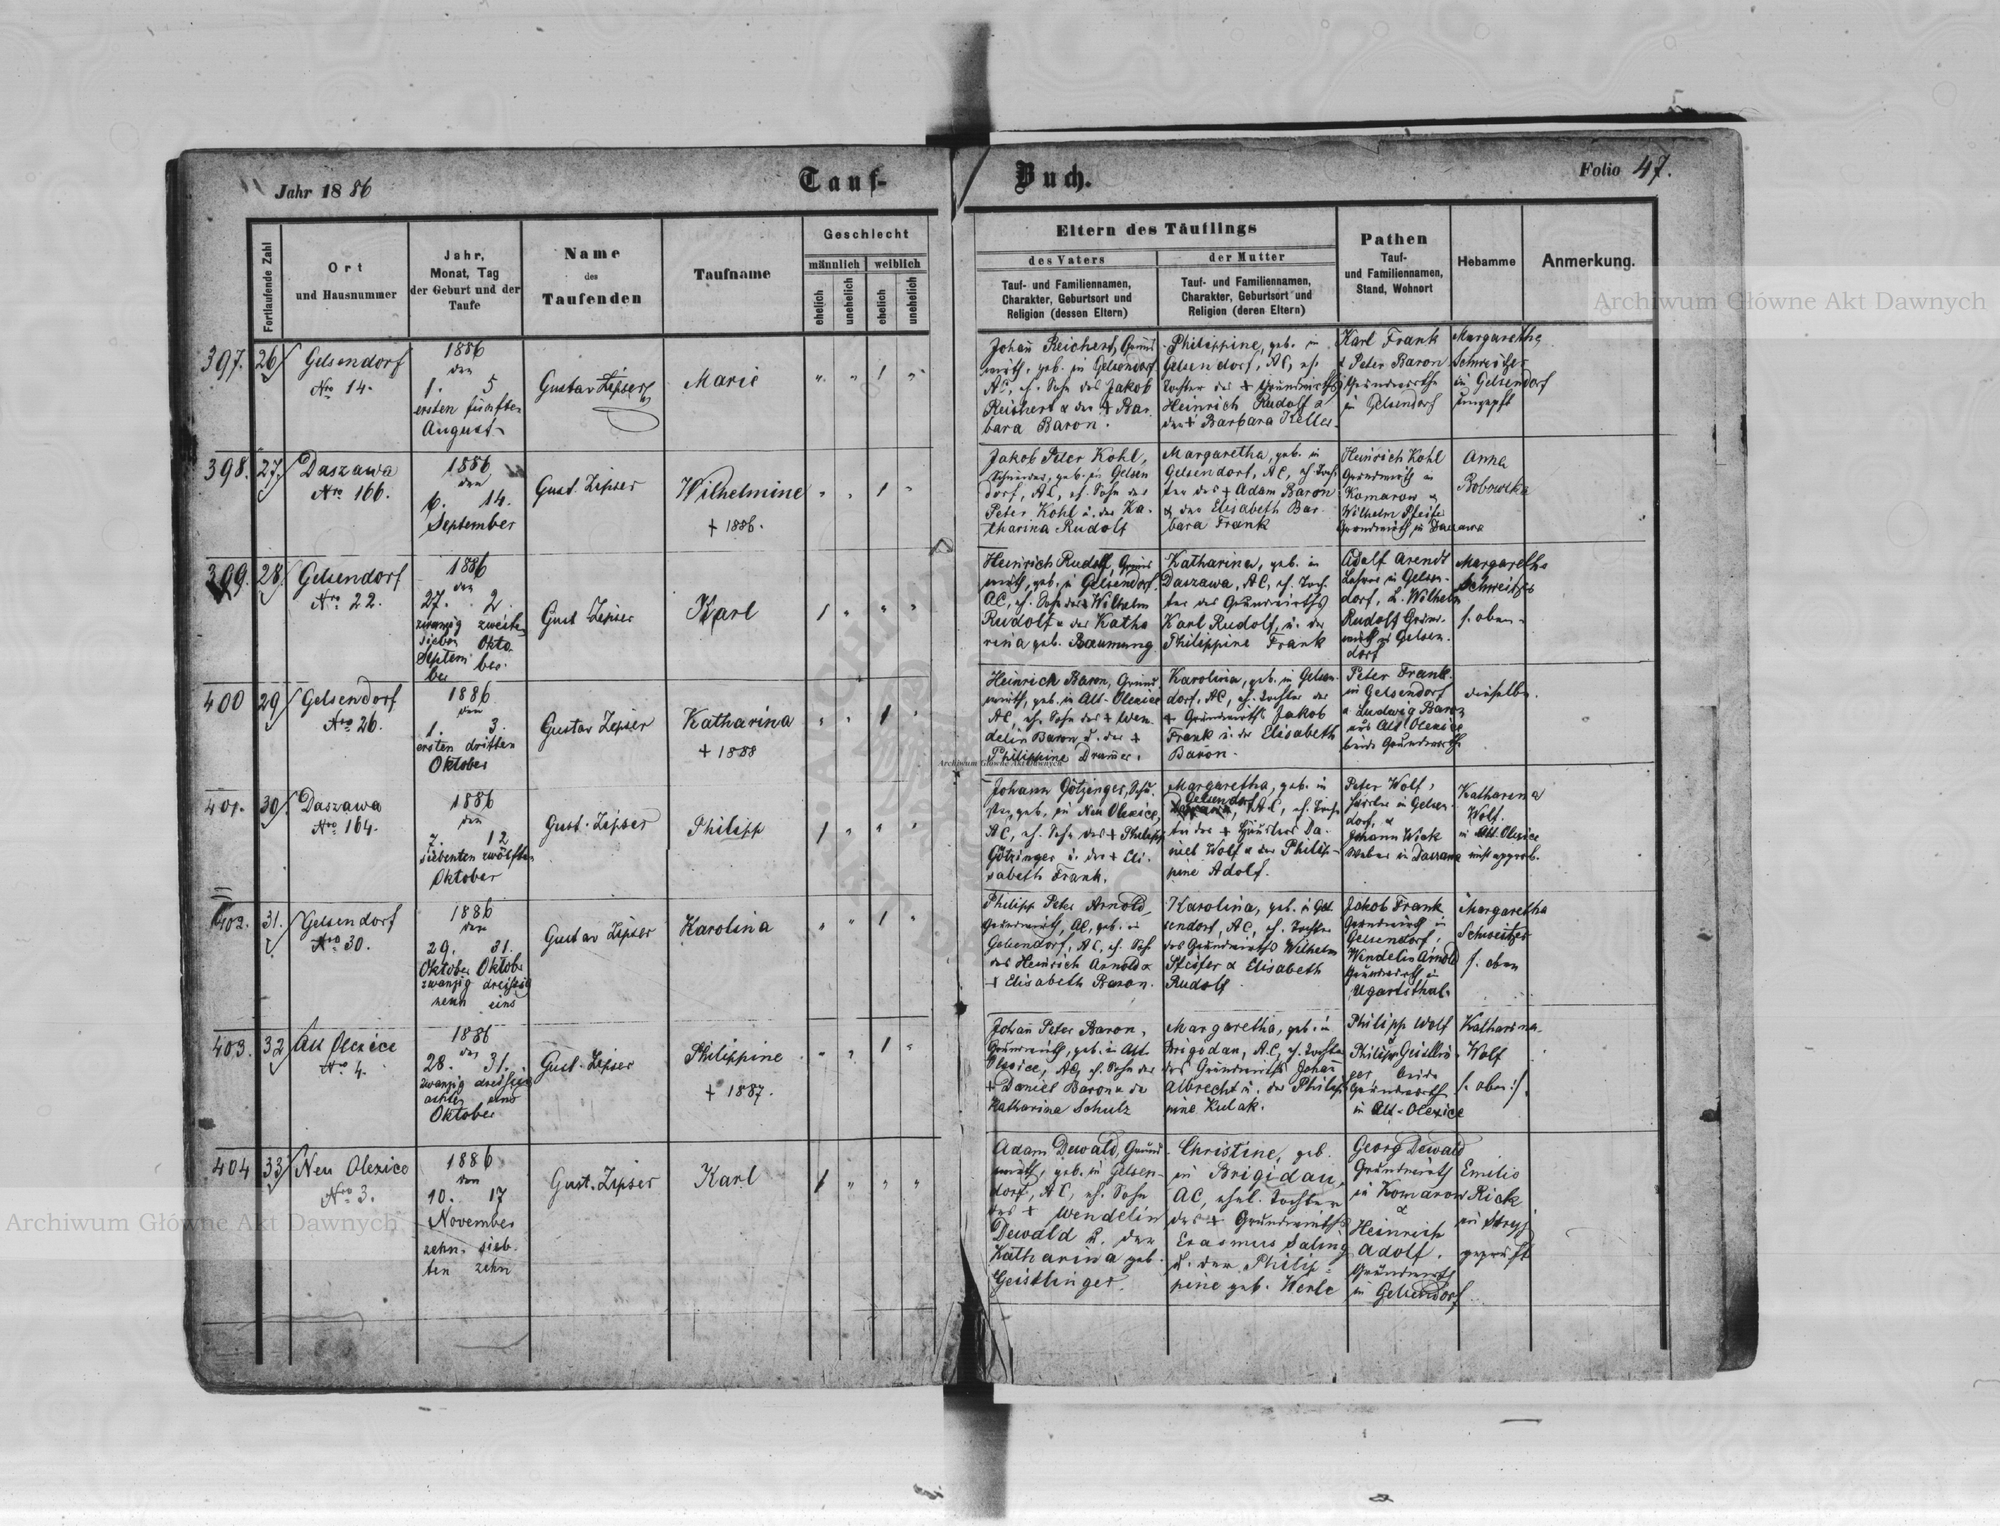 Jahr 1886
Tauf-
Buch.
Folio 47.
Fortlaufende Zahl
Ort
und Hausnummer
Jahr,
Monat, Tag
der Geburt und der
Taufe
Name
des
Taufenden
Taufname
Geschlecht
männlich
weiblich
ehelich
unehelich
ehelich
unehelich
Eltern des Täuflings
des Vaters
Tauf- und Familiennamen,
Charakter, Geburtsort und
Religion (dessen Eltern)
der Mutter
Tauf- und Familiennamen,
Charakter, Geburtsort und
Religion (deren Eltern)
Pathen
Tauf-
und Familiennamen,
Stand, Wohnort
Hebamme
Anmerkung.
397.
26
Gelsendorf
Nro 14.
1886
den
1. 5
ersten fünften
August
Gustav Zipser
Marie
" " 1 "
Johann Reichert, Grund
wirth, geb. in Gelsendorf
AC, eh. Sohn des Jakob
Reichert & der + Bar
bara Baron.
Philippine, geb. in
Gelsendorf, AC, eh.
Tochter des + Grundwirths
Heinrich Rudolf &
der + Barbara Keller
Karl Frank
& Peter Baron
Grundwirthe
in Gelsendorf
Margaretha
Schweitzer
in Gelsendorf
ungepft
398.
27.
Daszawa
Nro 166.
1886
den
6. 14.
September
Gust. Zipser
Wilhelmine
+ 1886.
" " 1 "
Jakob Peter Kohl,
Schneider, geb. in Gelsen
dorf, AC, eh. Sohn des
Peter Kohl u. der Ka-
tharina Rudolf
Margaretha, geb. in
Gelsendorf, AC, eh. Toch-
ter des + Adam Baron
& der Elisabeth Bar-
bara Frank
Heinrich Kohl
Grundwirth in
Komarow &
Wilhelm Pfeifer
Grundwirth in Daszawa
Anna
Bobowska
399.
28.
Gelsendorf
Nro 22.
1886
den
27. 2.
zwanzig zweite
sieben Okto
Septem ber.
ber
Gust Zipser
Karl
1 " " "
Heinrich Rudolf, Grund
wirth, geb. in Gelsendorf.
AC, eh. Sohn des Wilhelm
Rudolf u der Katha
rina geb. Baumung
Katharina, geb. in
Daszawa, AC, eh. Toch-
ter des Grundwirths
Karl Rudolf, u. der
Philippine Frank
Adolf Arendt
Lehrer in Gelsen-
dorf, & Wilhelm
Rudolf Grund-
wirth in Gelsen-
dorf
Margaretha
Schweitzer
s. oben
400
29
Gelsendorf
Nro 26.
1886
den
1. 3.
ersten dritten
Oktober
Gustav Zipser
Katharina
+ 1888
" " 1 "
Heinrich Baron, Grund
wirth, geb. in Alt-Olexice
AC, eh. Sohn des + Wen
delin Baron u. der +
Philippine Drumer.
Karolina, geb. in Gelsen-
dorf, AC, eh. Tochter des
+ Grundwirths Jakob
Frank u. der Elisabeth
Baron.
Peter Frank
in Gelsendorf
& Ludwig Baron
aus Alt Olexice
beide Grundwirthe
dieselbe.
401.
30
Daszawa
Nro 164.
1886
den
7. 12
siebenten zwölften
Oktober
Gust. Zipser
Philipp
1 " " "
Johann Götzinger,
geb. in Neu Olexice,
AC, eh. Sohn des + Philipp
Götzinger u. der + Eli-
sabeth Frank.
Margaretha, geb. in
Gelsendorf
Daszawa, AC, eh. Toch
ter des + Häuslers Da-
niel Wolf & der Philip-
pine Adolf.
Peter Wolf,
in Gelsen
dorf, &
Johann Wick
Weber in Daszawa
Katharina
Wolf.
in Alt Olexice
nicht approb.
402.
31.
Gelsendorf
Nro 30.
1886
den
29. 31.
Oktober Oktober
zwanzig dreissig
neun eins
Gustav Zipser
Karolina
" " 1 "
Philipp Peter Arnold,
Grundwirth, AC, geb. in
Gelsendorf, AC, eh. Sohn
des Heinrich Arnold &
+ Elisabeth Baron.
Karolina, geb. in Gel
sendorf, AC, eh. Tochter
des Grundwirths Wilhelm
Pfeifer & Elisabeth
Rudolf
Jakob Frank
Grundwirth in
Gelsendorf,
Wendelin Arnold
Grundwirth in
Ugartsthal.
Margaretha
Schweitzer
s. oben
403.
32
Alt Olexice
Nro 4.
1886
den
28. 31.
zwanzig dreissig
achten eins
Oktober
Gust. Zipser
Philippine
+ 1887.
" " 1 "
Johann Peter Baron,
Grundwirth, geb. in Alt-
Olexice, AC, eh. Sohn des
+ Daniel Baron u. der
Katharina Schulz
Margaretha, geb. in
Brigidau, AC, eh. Tochter
des Grundwirths Johann
Albrecht u. der Philip
pine Kulak.
Philipp Wolf
Philipp Geistlin-
ger beide
Grundwirth
in Alt-Olexice
Katharina
Wolf
/: oben :/.
404
33
Neu Olexice
Nro 3.
1886
den
10. 17
November
zehn- sieb-
ten zehn
Gust. Zipser
Karl
1 " " "
Adam Dewald, Grund
wirth, geb. in Gelsen-
dorf, AC, eh. Sohn
des + Wendelin
Dewald u. der
Katharina geb.
Geistlinger.
Christine, geb.
in Brigidau,
AC, ehel. Tochter
des + Grundwirths
Erasmus Saling
u. der Philip-
pine geb. Werle
Georg Dewald
Grundwirth
in Komarow
&
Heinrich
Adolf.
Grundwirth
in Gelsendorf
Emilie
Rick
in Stryj
geprüft
Archiwum Główne Akt Dawnych
Archiwum Główne Akt Dawnych
Archiwum Główne Akt Dawnych